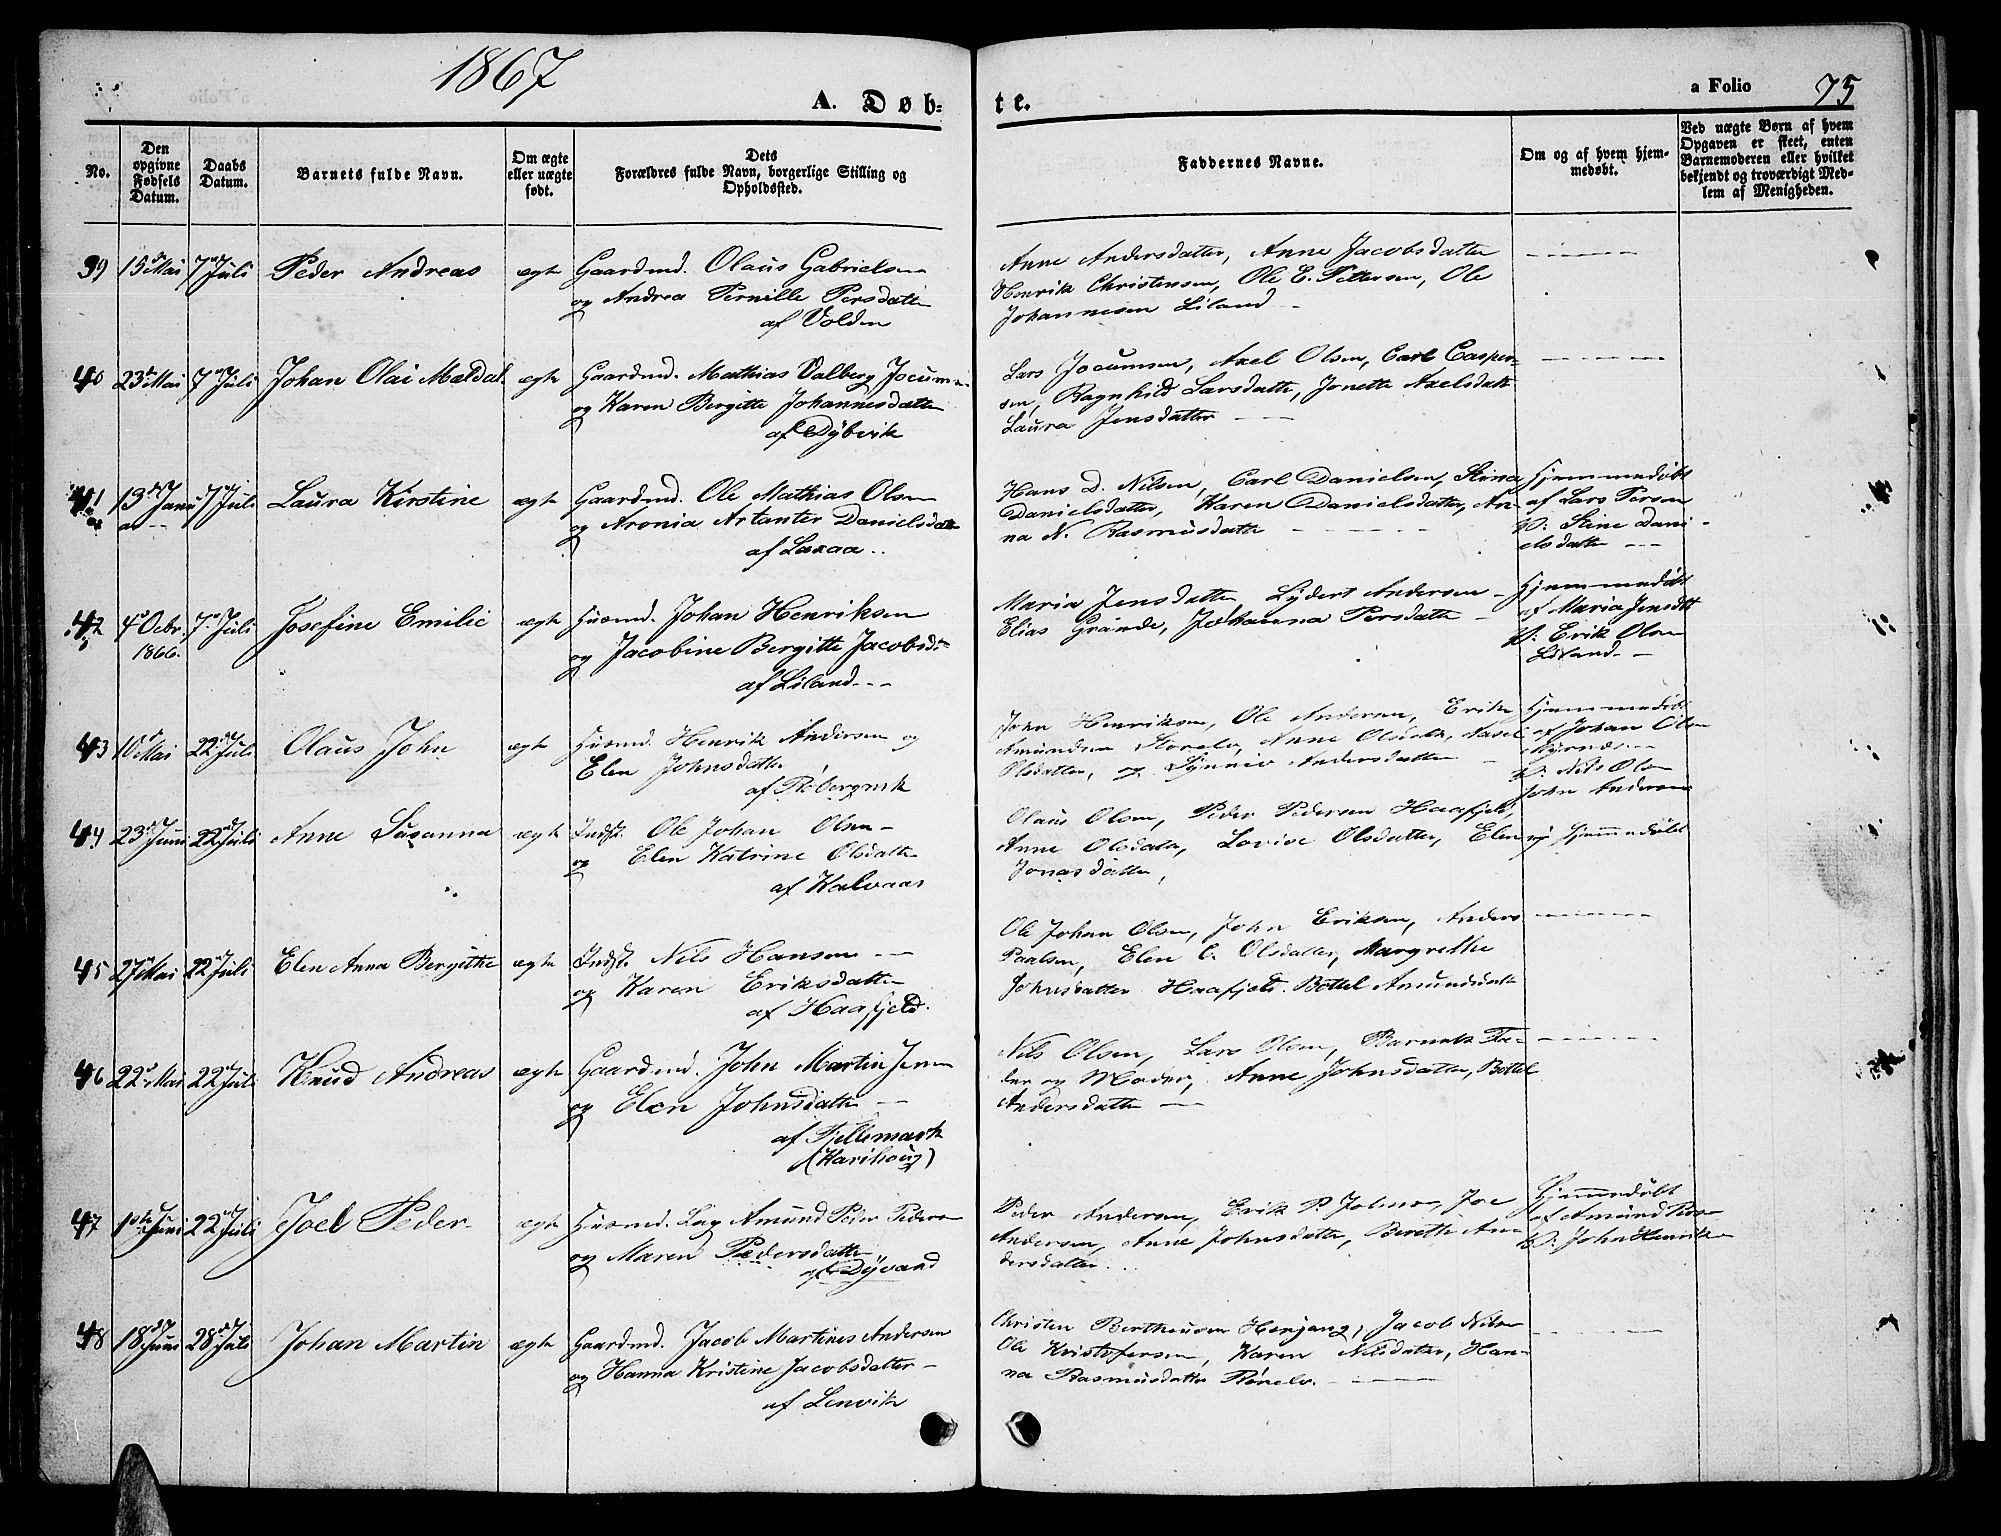 1867
A. Døb-
te.
a Folio 75
No.
Den opgivne Fødsels Datum.
Daabs Datum.
Barnets fulde Navn.
Om ægte eller uægte født.
Dets Forældres fulde Navn, borgerlige Stilling og Opholdssted.
Faddernes Navne.
Om og af hvem hjemmedøbt.
Ved uægte Børn af hvem
Opgaven er skeet, enten
Barnemoderen eller hvilket
bekjendt og troværdigt Med-
lem af Menigheden.
39 15de Mai 7de Juli Peder Andreas ægte Gaardmd. Olaus Gabrielsen
og Andrea Pernille Persdatter
af Volden
Anne Andersdatter, Anne Jacobsdatter
Henrik Christensen, Ole E. Pettersen, Ole
Johannesen Liland
40 23de Mai 7de Juli Johan Olai Mældal ægte Gaardmd. Mathias Valberg Jocumsen
og Karen Bergitte Johannesdatter
af Dybvik
Lars Jocumsen, Axel Olsen, Carl Casper-
sen, Ragnhild Larsdatter, Jonette Axelsdatter
Laura Jensdatter
41 13de Janu 7de Juli Laura Kirstine ægte Gaardmd. Ole Mathias Olsen
og Aronia Artanter Danielsdatter
af Laxaa
Hans D. Nilsen, Carl Danielsen, Stina
Danielsdatter, Karen Danielsdatter, An-
na N. Rasmusdatter
Hjemmedøbt
af Lars Persen
V: Stine Dani-
elsdatter
42 4de Oebr. 7de Juli Josefine Emilie ægte Husmd. Johan Henriksen
1866.
og Jacobine Bergitte Jacobsdtr
af Liland
Maria Jensdatter Lydert Andersen
Elias Grande, Johanna Persdatter
Hjemmedøbt
af Maria Jensdtt
V: Erik Olsen
Liland
43 10de Mai 22de Juli Olaus John ægte Husmd. Henrik Andersen og
Elen Johnsdatter
af Robergvik
John Henriksen, Ole Andersen, Erik
Amundsen Storelv, Anne Olsdatter,
Olsdatter, og Synnev Andersdatter
Hjemmedøbt
af Johan Olsen
V: Nils Olsen
John Andersen
44 23de Juni 22de Juli Anne Susanna ægte Indst. Ole Johan Olsen
og Elen Katrine Olsdatter
af Kalvaas
Olaus Olsen, Peder Pedersen Haafjeld,
Anne Olsdatter, Lovise Olsdatter, Elen
Jonasdatter,
ej Hjemmedøbt
45 27de Mai 22de Juli Elen Anna Bergithe ægte Indst. Nils Hansen
og Karen Eriksdatter
af Haafjeld.
Ole Johan Olsen, John Eriksen, Anders
Paalsen, Elen C. Olsdatter, Margrethe
Johnsdatter Haafjeld. Bottel Amundsdatt
46 22de Mai 22de Juli Knud Andreas ægte Gaardmd. John Martin Jensen
og Elen Johnsdatter
af Fjellemark
(Karihoug)
Nils Olsen, Lars Olsen, Barnets Fa-
der og Moder, Anne Johnsdatter, Bottel
Andersdatter
47 10de Juni 22de Juli Joel Peder ægte Husmd. Lag Amund Peder Pedersen
og Maren Pedersdatter
af Dyvand
Peder Andersen, Erik P. Johns, Joe
Andersen, Anne Johnsdatter, Berethe An-
dersdatter
Hjemmedøbt
af Amund Persen
V: John Henriksen
48 18de Juni 28de Juli Johan Martin ægte Gaardmd. Jacob Martines Andersen
og Hanna Kristine Jacobsdatter
af Lenvik
Christen Bertheusen Herjang, Jacob Nilsen
Ole Kristofersen, Karen Nilsdatter, Han-
na Rasmusdatter Rønelv.